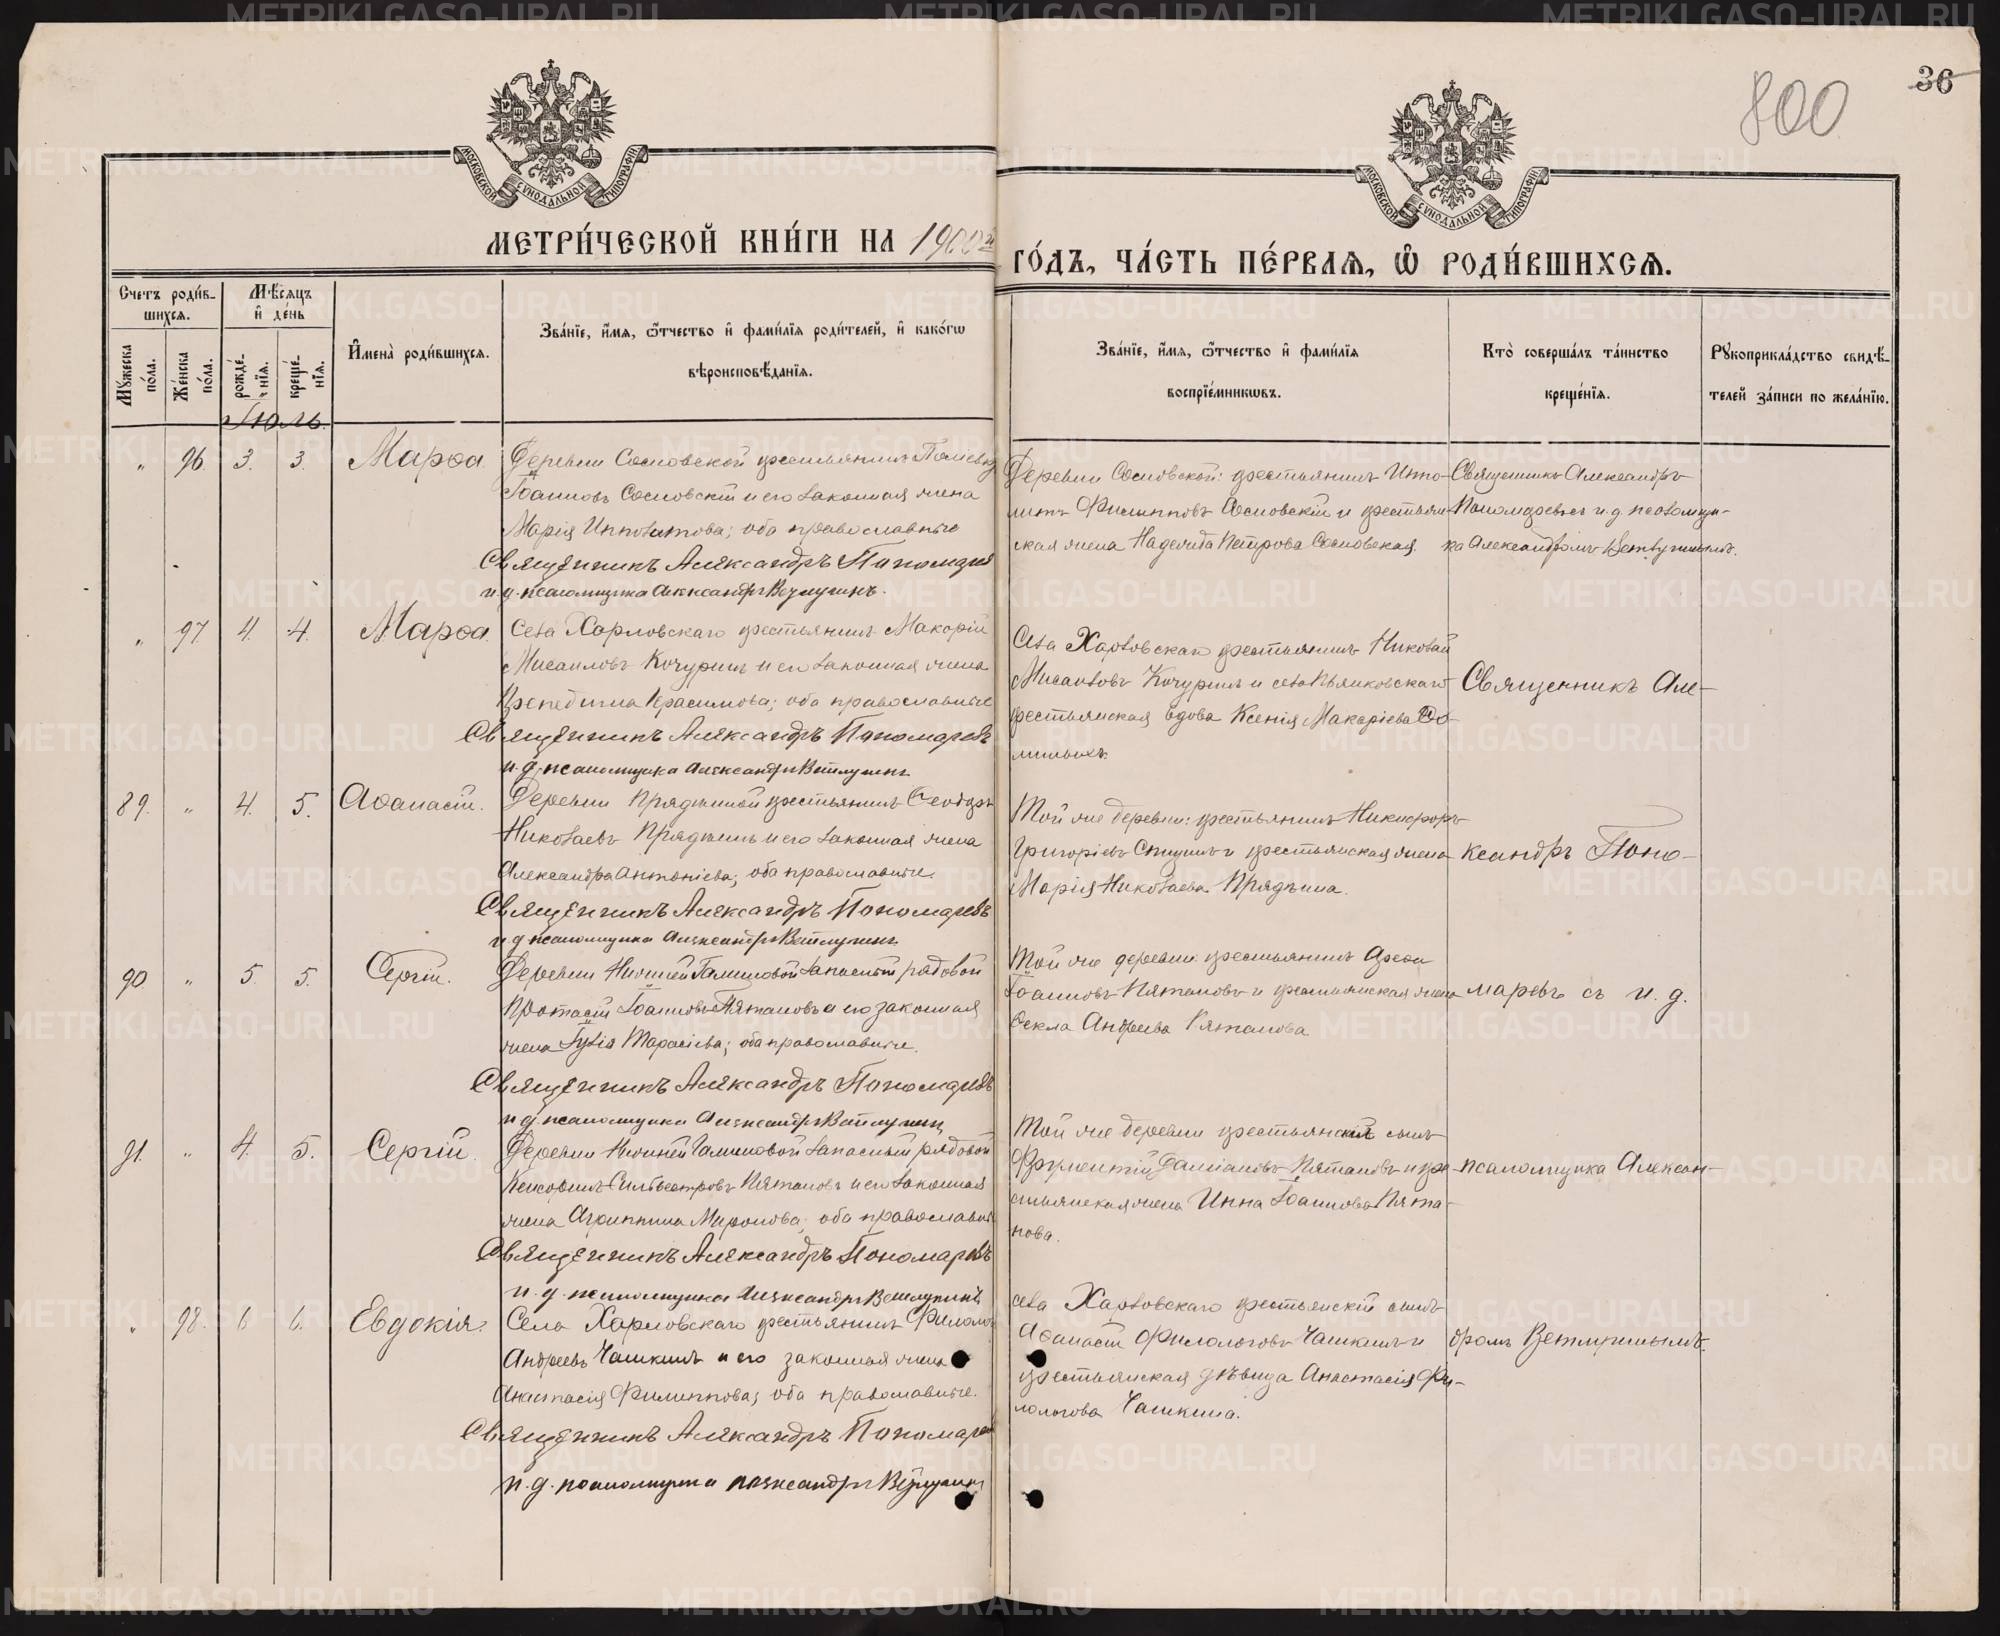 36
800
МОСКОВСКОЙ СУНОДАЛЬНОЙ ТИПОГРАФІИ
МОСКОВСКОЙ СУНОДАЛЬНОЙ ТИПОГРАФІИ
МЕТРИ́ЧЕСКОЙ КНИ́ГИ НА 1900й ГО́ДЪ, ЧА́СТЬ ПЕ́РВАѦ, Ѽ РОДИ́ВШИХСѦ.
Счетъ роди́в-
шихсѧ.
Мѣ́сѧцъ
и҆ де́нь
Мꙋжеска
по́ла.
Же́нска
по́ла.
рожде́-
нїѧ.
креще́-
нїѧ.
И҆мена̀ роди́вшихсѧ.
Зва́нїе, и҆́мѧ, ѻ҆́тчество и҆ фами́лїѧ роди́телей, и҆ како́гѡ
вѣроисповѣ́данїѧ.
Зва́нїе, и҆́мѧ, ѻ҆́тчество и҆ фами́лїѧ
воспрїе́мникѡвъ.
Кто̀ соверша́лъ та́инство
креще́нїѧ.
Рꙋкоприкла́дство свидѣ́-
телей за́писи по жела́нїю.
Іюль.
" 96. 3. 3. Марѳа. Деревни Сосновской крестьянинъ
Іоанновъ Сосновскій и его законная жена
Марія Ипполитова; оба православные
Священникъ Александръ Пономарев
и. д. псаломщика Александръ Ветлугинъ.
Деревни Сосновской: крестьянинъ Иппо-
литъ Филипповъ Сосновскій и крестьян-
ская жена Надежда Петрова Сосновская.
Священникъ Александръ
Пономаревъ съ и. д. псаломщи-
ка Александромъ Ветлугинымъ.
" 97 4. 4. Марѳа. Села Харловскаго крестьянинъ Макарій
Мисаиловъ Кочуринъ и его законная жена
Герасимова; оба православные
Священникъ Александръ Пономаревъ
и. д. псаломщика Александръ Ветлугинъ
Села Харловскаго крестьянинъ Николай
Мисаиловъ Кочуринъ и села Пьянковскаго
крестьянская вдова Ксенія Макаріева
Священникъ Але-
89. " 4. 5. Аѳанасій. Деревни Прядеиной крестьянинъ Ѳеодоръ
Николаевъ Прядеинъ и его законная жена
Александра Антоніева; оба православные.
Священникъ Александръ Пономаревъ
и д псаломщика Александръ Ветлугинъ
Той же деревни: крестьянинъ Никифоръ
Григоріевъ Спицинъ и крестьянская жена
Марія Николаева Прядеина.
ксандръ Поно-
90. " 5. 5. Сергій. Деревни Нижней запасный рядовой
Протасій Іоанновъ Пятановъ и его законная
жена Юлія Тарасіева; оба православные.
Священникъ Александръ Пономаревъ
и д. псаломщика Александръ Ветлугинъ
Той же деревни: крестьянинъ
Іоанновъ Пятановъ и крестьянская жена
Ѳекла Андреева Пятанова
маревъ съ и. д.
91. " 4. 5. Сергій. Деревни Нижней запасный рядовой
Силвестровъ Пятановъ и его законная
жена Агриппина Миронова; оба православные
Священникъ Александръ Пономаревъ
и. д. псаломщика Александръ Ветлугинъ
Той же деревни крестьянскій сынъ
Фрументій Даміановъ Пятановъ и кре-
стьянская жена Инна Іоаннова Пята-
нова.
псаломщика Алексан-
" 98. 6 6. Евдокія. Села Харловскаго крестьянинъ Филологъ
Андреевъ Чашкинъ и его законная жена
Анастасія Филиппова; оба православные.
Священникъ Александръ Пономарев
и. д. псаломщика Александръ Ветлугинъ
села Харловскаго крестьянскій сынъ
Аѳанасій Филологовъ Чашкинъ и
крестьянская дѣвица Анастасія Фи-
лологова Чашкина.
дромъ Ветлугинымъ.
METRIKI.GASO-URAL.RU